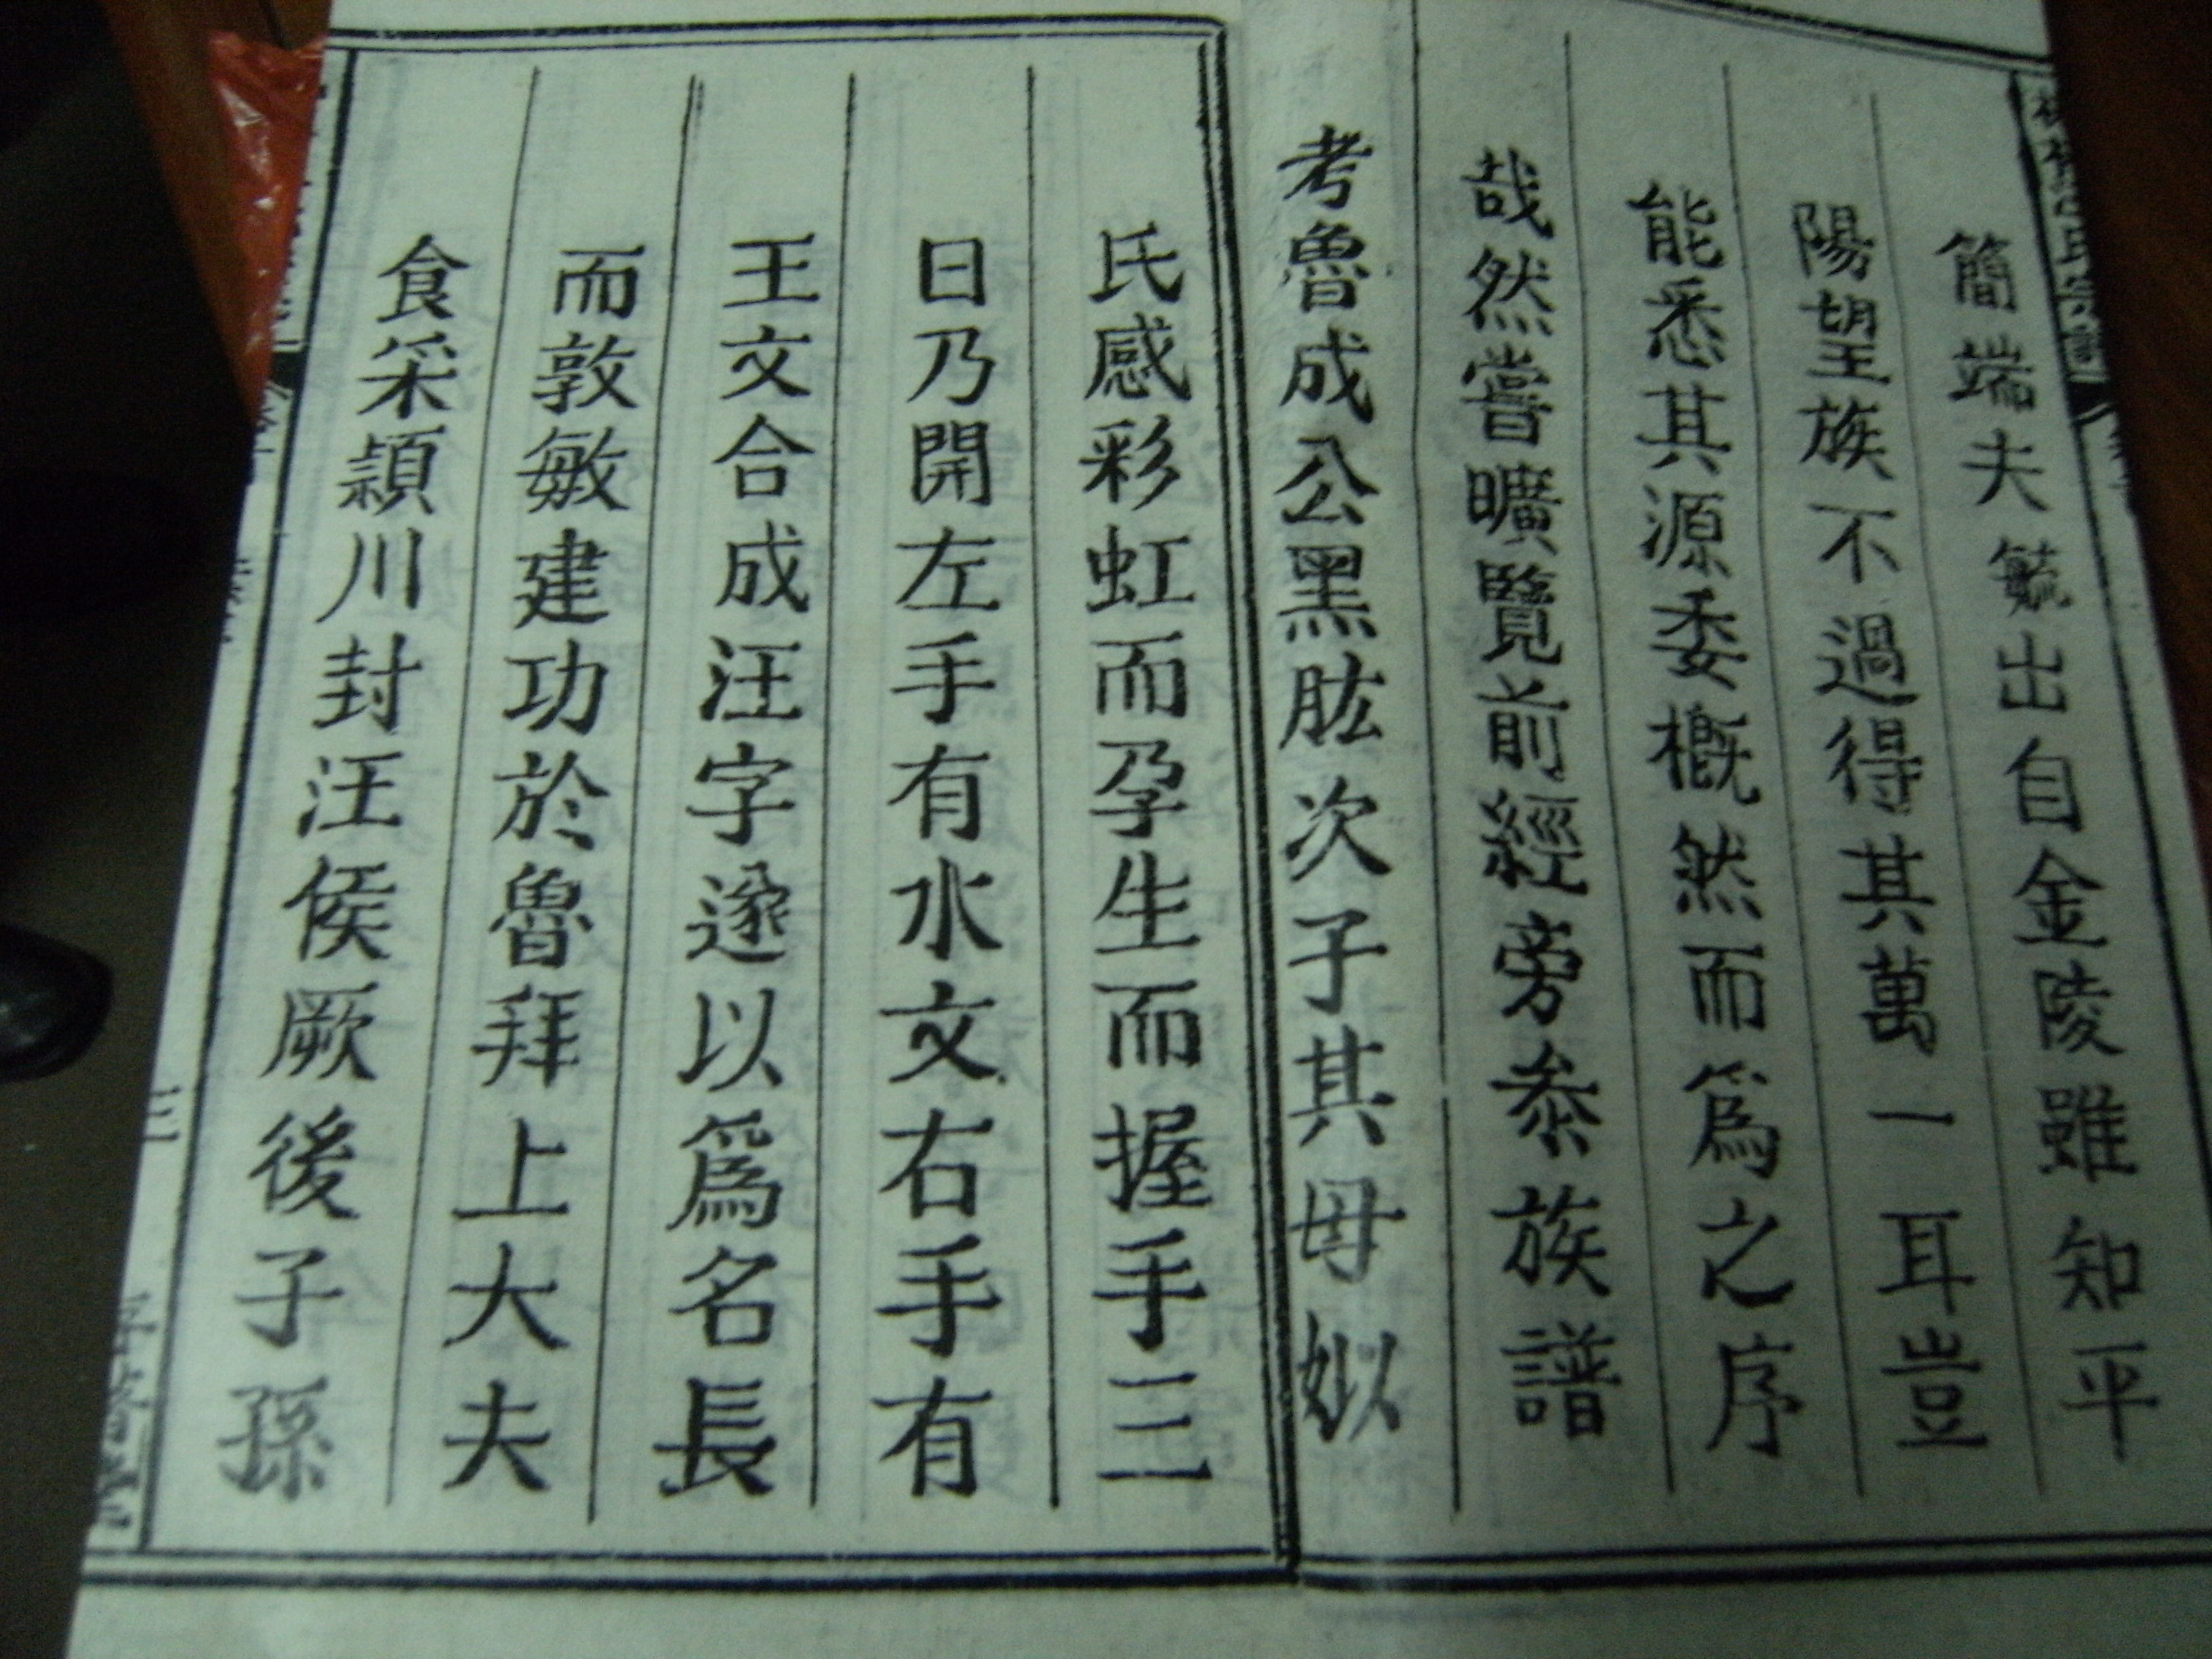 簡端夫毓出自金陵雖知平
陽望族不過得其萬一耳豈
能悉其源委概然而爲之序
哉然嘗曠覽前經旁叅族譜
考魯成公黑肱次子其母姒
氏感彩虹而孕生而握手三
日乃開左手有水文右手有
王文合成汪字遂以爲名長
而敦敏建功於魯拜上大夫
食采潁川封汪侯厥後子孫
三